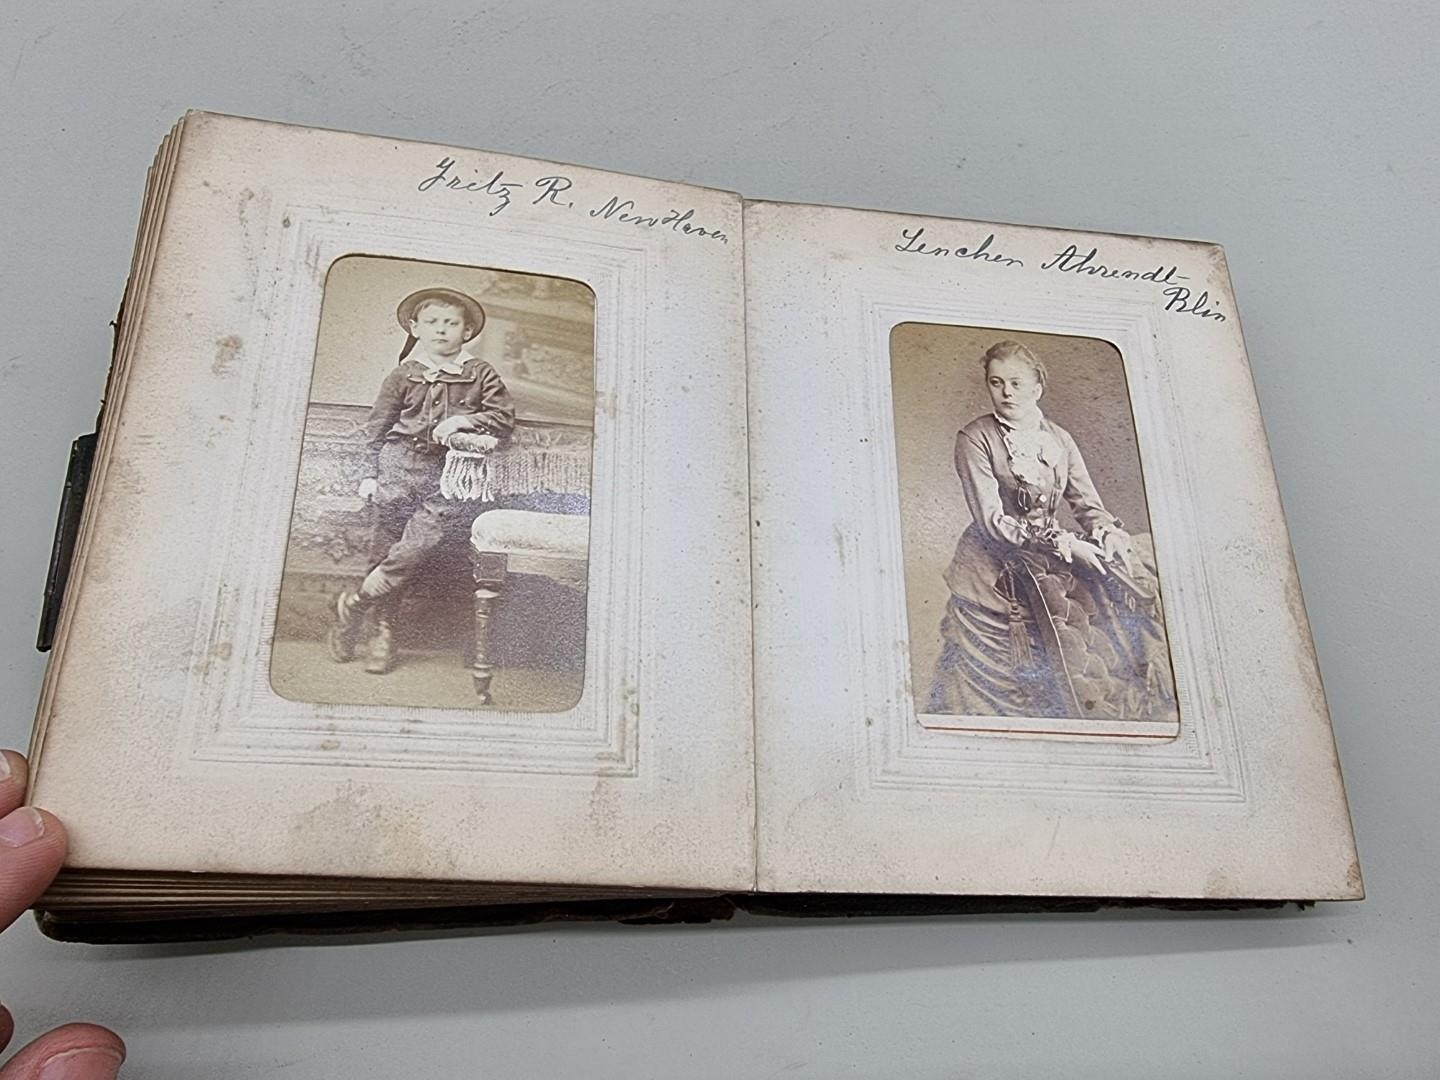 Fritz R. New Haven
Lenchen Ahrendt
Blin